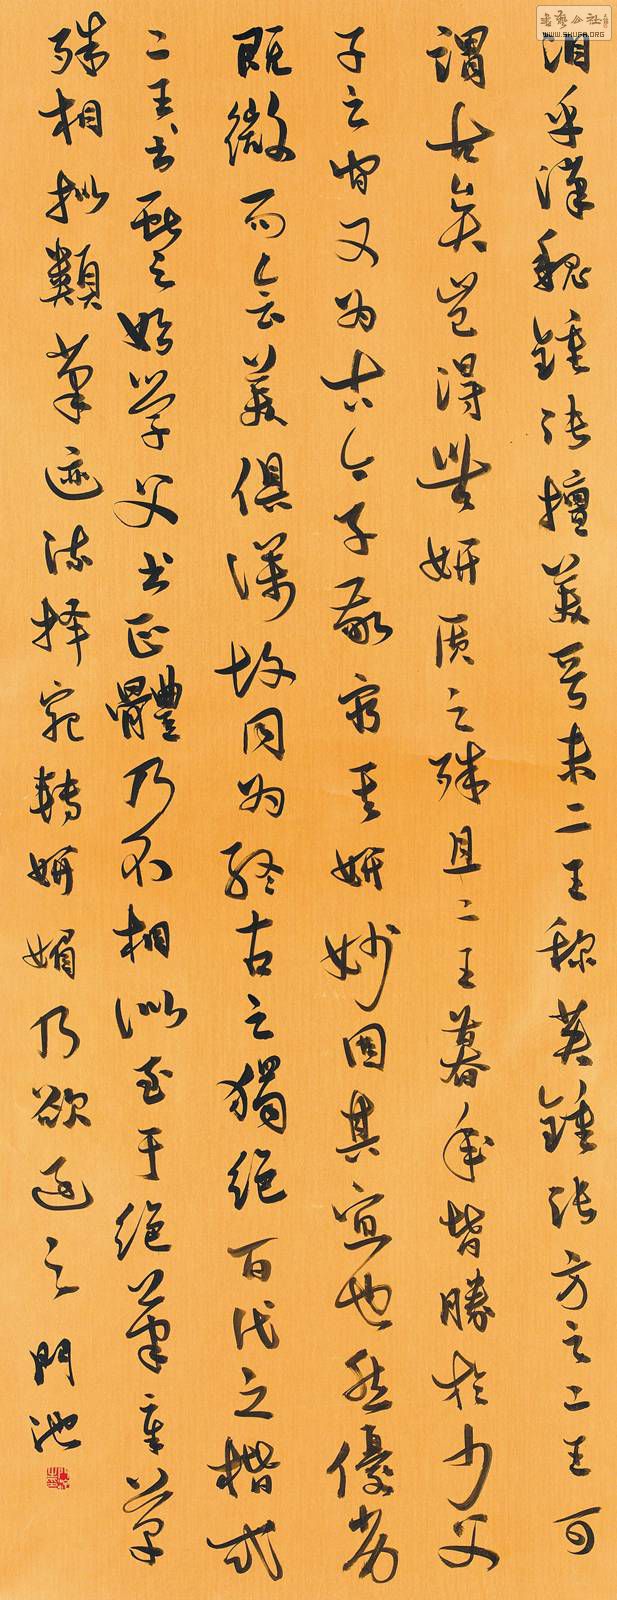 洎乎漢魏鍾張擅美晉末二王稱英鍾張方之二王可
謂古矣豈得無妍質之殊且二王暮年皆勝於少父
子之間又為古今子敬窮其妍妙固其宜也然優劣
既微而會美俱深故同為終古之獨絕百代之楷式
二王書獻之始學父書正體乃不相似至于絕筆章草
殊相擬類筆迹流擇宛轉妍媚乃欲過之門池
书艺公社
WWW.SHUFA.ORG